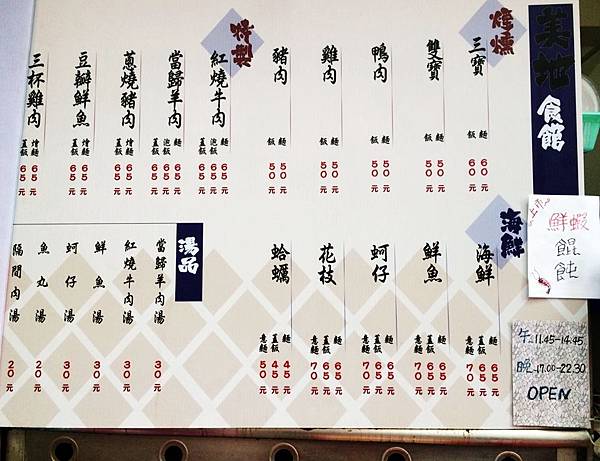 美地食館
燒燻
三寶
麵 60元
飯 60元
雙寶
麵 50元
飯 50元
鴨肉
麵 50元
飯 50元
雞肉
麵 50元
飯 50元
豬肉
麵 50元
飯 50元
特製
紅燒牛肉
麵 65元
泡飯 65元
蓋飯 65元
當歸羊肉
麵 65元
泡飯 65元
蓋飯 65元
蔥燒豬肉
燴麵 65元
蓋飯 65元
豆瓣鮮魚
燴麵 65元
蓋飯 65元
三杯雞肉
燴麵 65元
蓋飯 65元
海鮮
海鮮
麵 65元
蓋飯 65元
意麵 70元
鮮魚
麵 65元
蓋飯 65元
意麵 70元
蚵仔
麵 65元
蓋飯 65元
意麵 70元
花枝
麵 65元
蓋飯 65元
意麵 70元
蛤蠣
麵 45元
蓋飯 45元
意麵 50元
湯品
當歸羊肉湯 30元
紅燒牛肉湯 30元
鮮魚湯 30元
蚵仔湯 30元
魚丸湯 20元
隔間肉湯 20元
上市
鮮蝦
餛
飩
午-11.45-14.45
晚-17.00-22.30
OPEN